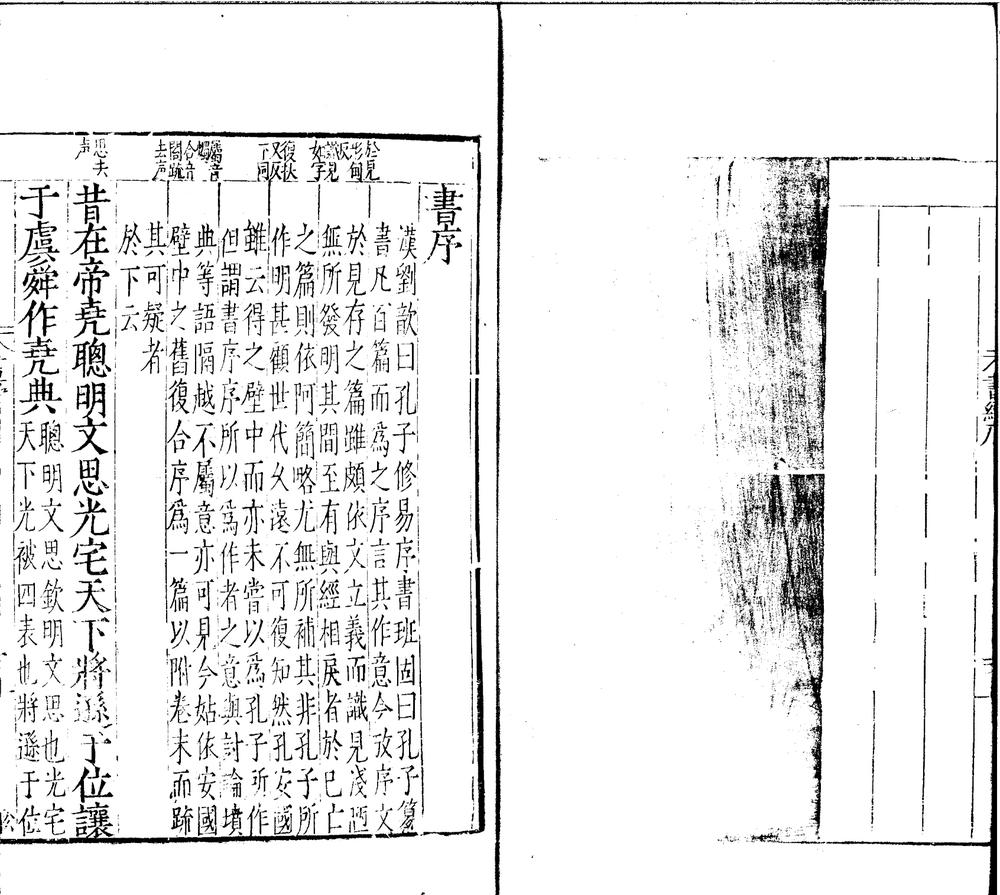 書序
漢劉歆曰孔子修易序書班固曰孔子篹
書凡百篇而爲之序言其作意今攷序文
於見存之篇雖頗依文立義而識見淺陋
無所發明其間至有與經相戾者於已亡
之篇則依阿簡略尤無所補其非孔子所
作明甚顧世代久遠不可復知然孔安國
雖云得之壁中而亦未嘗以爲孔子所作
但謂書序序所以爲作者之意與討論墳
典等語隔越不屬意亦可見今姑依安國
壁中之舊復合序爲一篇以附卷末而疏
其可疑者
於下云
昔在帝堯聰明文思光宅天下將遜于位讓
于虞舜作堯典
聰明文思欽明文思也光宅
天下光被四表也將遜于位
於見
形甸
反
識見
如字
復扶
又反
下同
屬音
燭
合音
閤疏
去声
思去
声